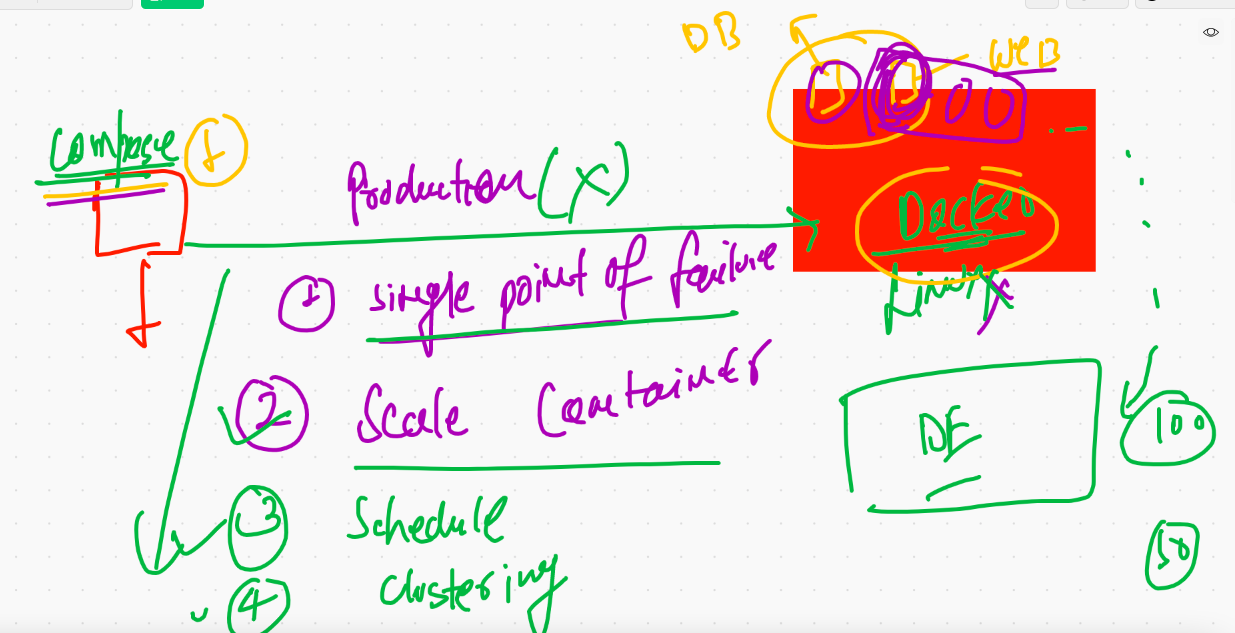 DB
WEB
compose 1
Production (X)
Docker
Linux
1 single point of failure
2 Scale Container
DE
100
3 Schedule
50
4 clustering